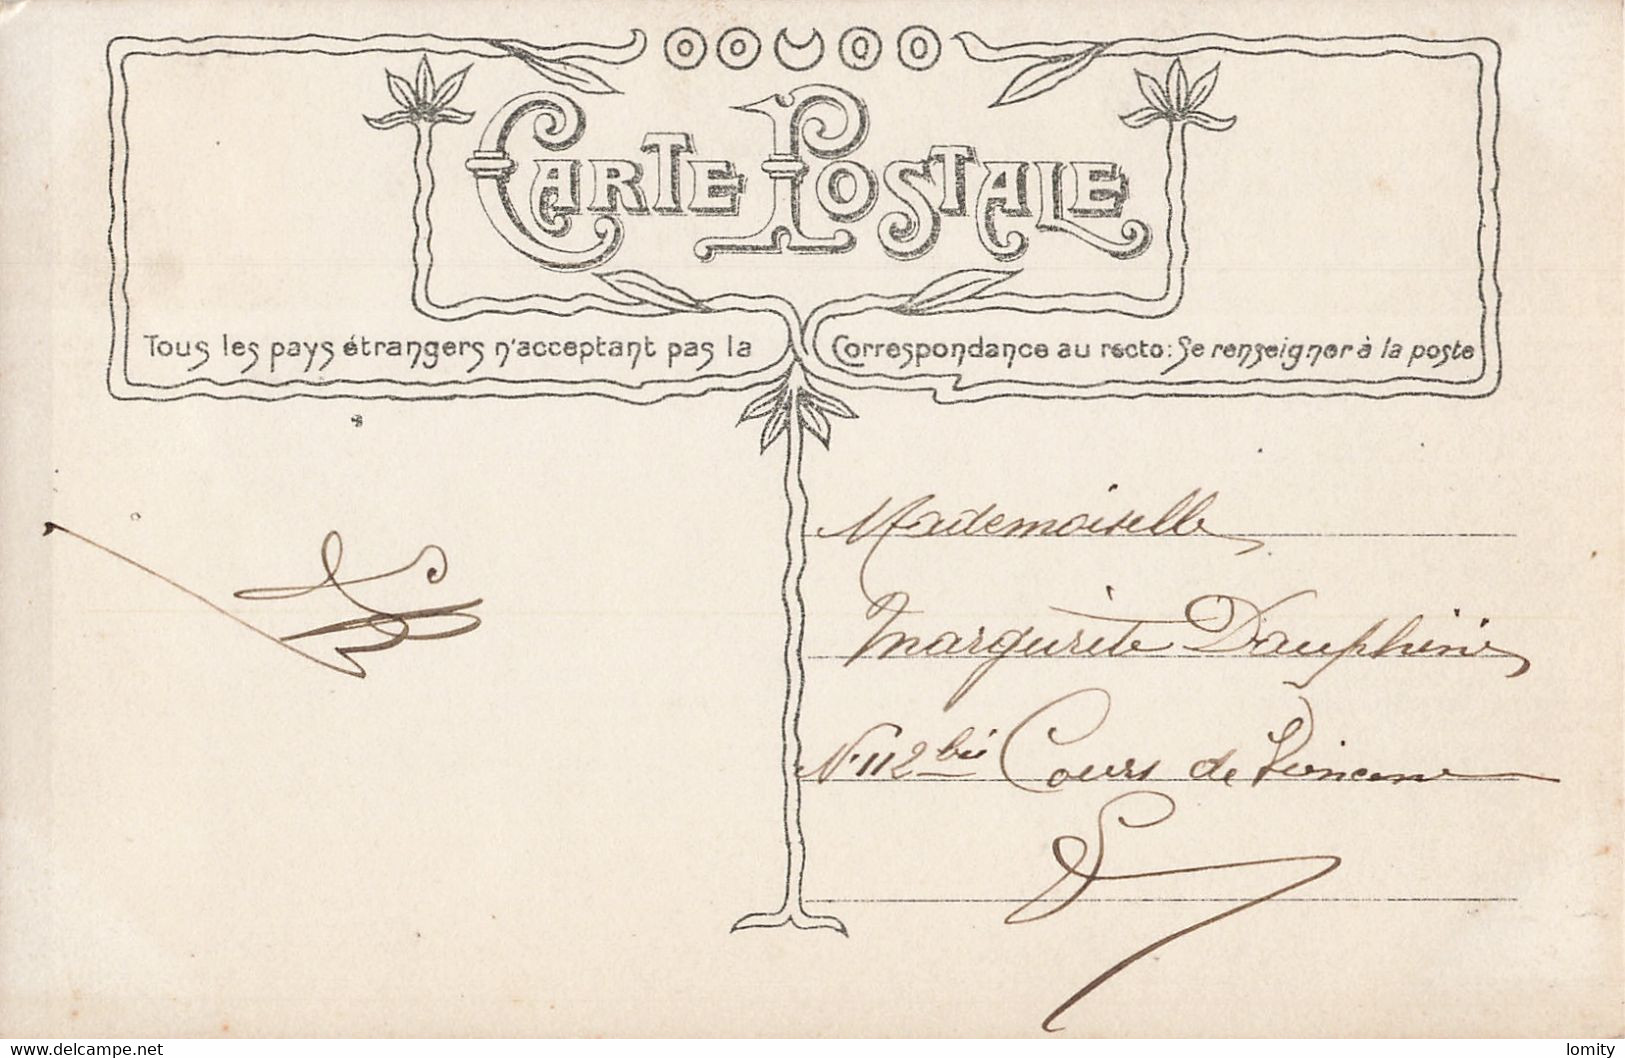 CARTE POSTALE
Tous les pays étrangers n'acceptant pas la Correspondance au recto: Se renseigner à la poste
Mademoiselle
Margurite Dauphine
N. 112 bis Cours de Vincenne
www.delcampe.net
lomity